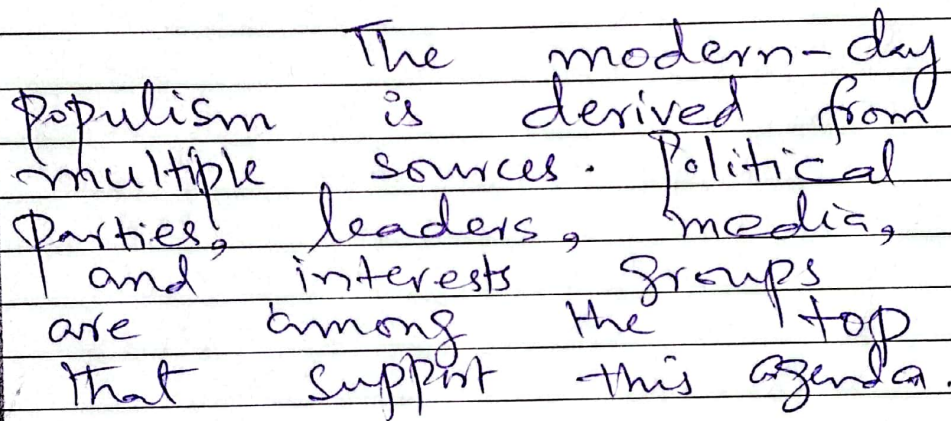 The modern-day
populism is derived from
multiple sources. Political
Parties, leaders, media,
and interests groups
are among the top
that support this agenda.